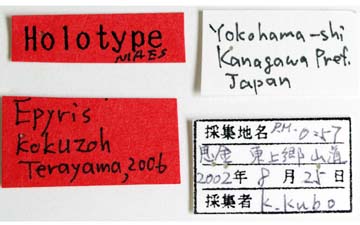 Holotype
NIAES
Yokohama-shi
Kanagawa Pref.
Japan
Epyris
kokuzoh
Terayama, 2006
採集地名 P.M. 0:57
東上郷 山道
2002 年 8 月 25 日
採集者 K. Kubo